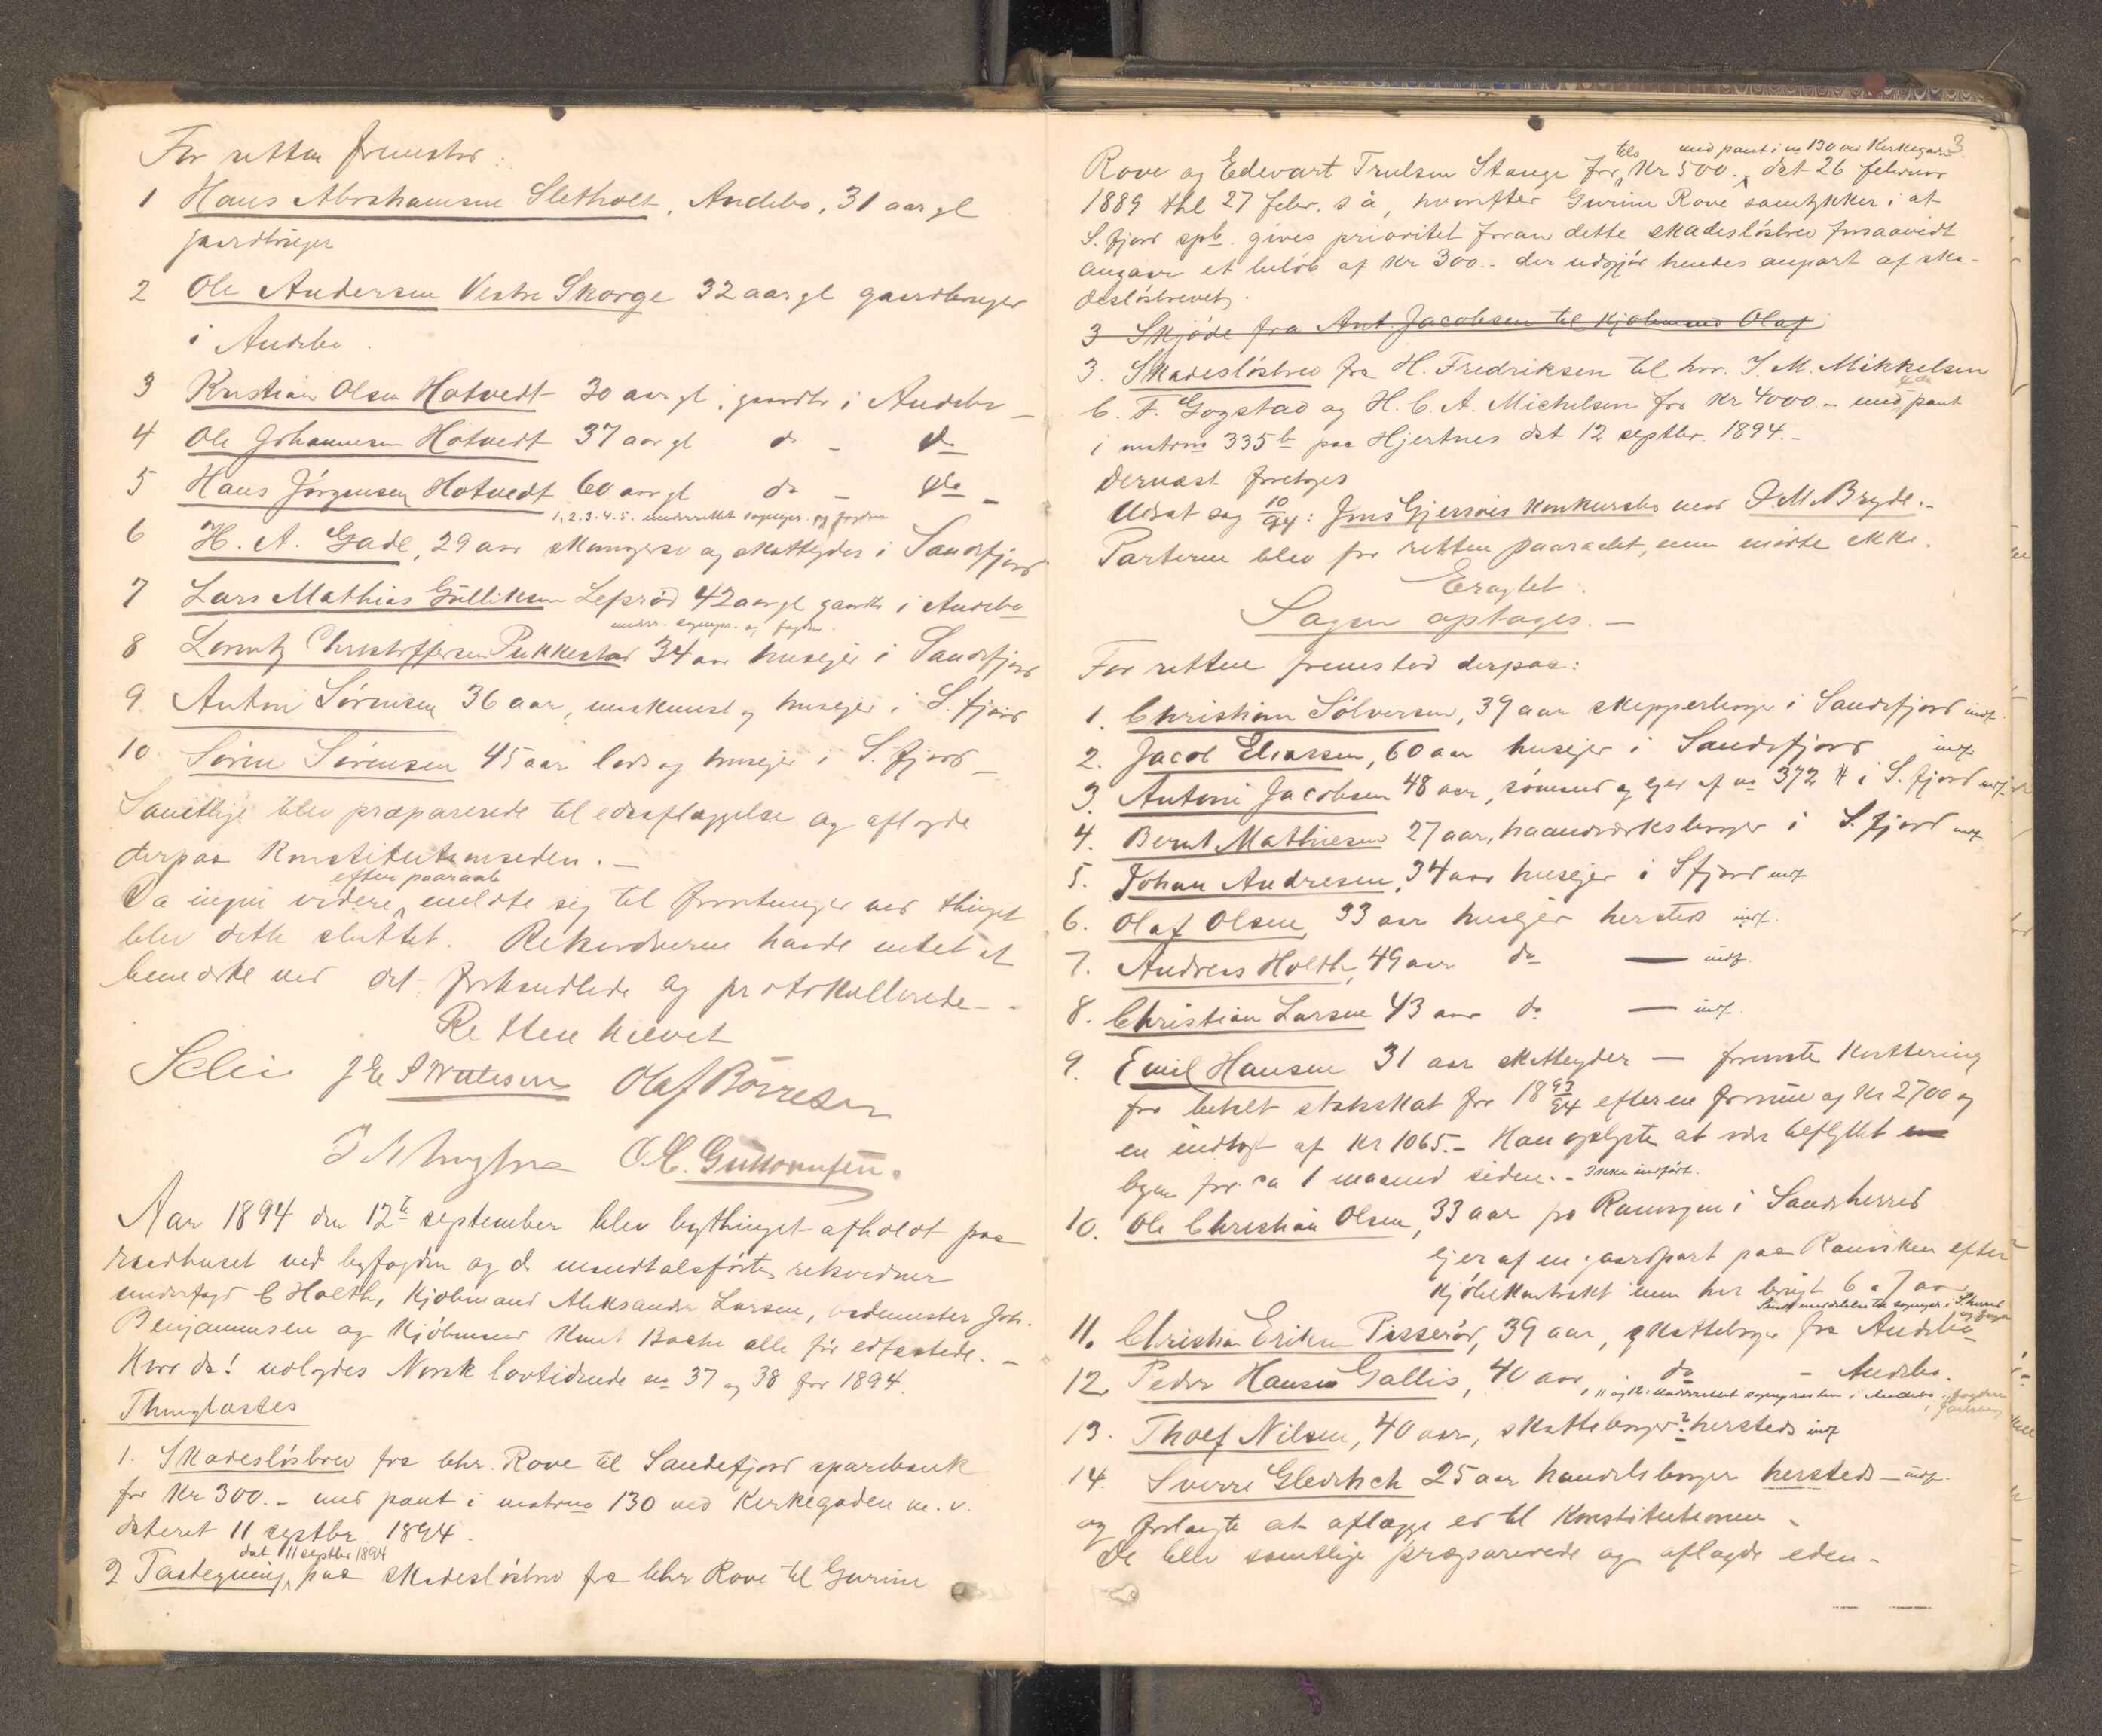 For retten fremstod:
1 Hans Abrahamsen Sletholt, Andebo, 31 aar gl
gaardbruger
2 Ole Andersen Vestre Skorge 32 aar gl gaardbruger
i Andebo.
3 Kristian Olsen Hotvedt 30 aar gl. gaardbr i Andebo
4 Ole Johannesen Hotvedt 37 aar gl do - do
5 Hans Jörgensen Hotvedt 60 aar gl do - do -
1. 2. 3. 4. 5. underrettet sognepr. og fogden
6 H. A. Gade, 29 aar skatteyder i Sandefjord
7 Lars Mathias Gulliksen Lefsröd 42 aar gl gaardbr i Andebo
underr. sognepr. og fogden.
8 Lorentz Christoffersen Pukkestad 34 aar husejer i Sandefjord
9. Anton Sörensen 36 aar, maskinist og husejer i S.fjord
10 Sören Sörensen 45 aar lods og husejer i S.fjord -
Samtlige blev præparerede til edsaflæggelse og aflagde
derpaa Konstitutionseden. -
efter paaraab
Da ingen videre meldte sig til forretninger ved thinget
blev dette sluttet. Rekvedneerne havde intet at
bemærke ved det forhandlede og protokollerede -
Retten hævet
Olaf Börresen
O. C. Guttormsen.
Aar 1894 den 12te september blev bythinget afholdt paa
raadhuset ved byfogden og de mandtalsförte rekvedner
underfogd C Holth, Kjöbmand Aleksander Larsen, bademester Joh.
Benjaminsen og Kjöbmand Knut Bache alle för edfæstede. -
Hvor da! udlagdes Norsk lovtidende no 37 og 38 for 1894.
Thinglæstes
1. Skadeslösbrev fra Chr. Rove til Sandefjord sparebank
for Kr 300. - med pant i matrno 130 ved Kirkegaden m. v.
dateret 11 septbr. 1894.
dat 11 septbr 1894
2 Paategning paa skadeslösbrev fra Chr Rove til Gurine
3
tils med pant i no 130 ved Kirkegaden
Rove og Edevart Trulsen Stange for Kr 500. - dat 26 februar
1889 thl 27 febr. s å, hvorefter Gurine Rove samtykker i at
S.fjord spb. gives prioritet foran dette skadeslösbrev forsaavidt
angaar et belöb af Kr 300. - der udgjör hendes anpart af ska-
deslösbrevet.
3 Skjöde fra Ant. Jacobsen til Kjöbmand Olaf
3. Skadeslösbrev fra H. Fredriksen til hrr. J. M. Mikkelsen
C. F. Gogstad og H. C. A. Michelsen for Kr 4000. - med pant
i matrno 335b paa Hjertnes dat 12 septbr. 1894. -
Dernæst foretoges
Udsat sag 10/94: Jens Gjersöes Konkursbo mod J. M. Bryde. -
Parterne blev for retten paaraabt, men mödte ikke.
Eragtet:
Sagen optages. -
For retten fremstod derpaa:
1. Christian Sölversen, 39 aar skipperborger i Sandefjord indf.
2. Jacob Eliassen, 60 aar husejer i Sandefjord indf.
3. Antoni Jacobsen 48 aar, sömand og ejer af no 372 i S.fjord indf.
4. Bernt Mathiesen 27 aar, haandværksborger i S.fjord indf.
5. Johan Andresen, 34 aar husejer i Sfjord indf
6. Olaf Olsen, 33 aar husejer hersteds indf.
7. Andreas Holth, 49 aar do — indf.
8. Christian Larsen 43 aar do — indf.
9. Emil Hansen 31 aar skatteyder — fremte kvittering
for betalt statsskat for 1893/94 efter en formue af Kr 2700 og
en indtægt af Kr 1065. - Han oplyste at være tilflyttet
byen for ca 1 maaned siden. - Ikke indfört.
10. Ole Christian Olsen, 33 aar fra i Sandeherred
ejer af en gaardpart paa Ranviken efter
kjöbekontrakt men har brugt 6 a 7 aar.
Sendt meddelelse til sognepr. i S.herred og fogden
11. Christian Eriksen Pisseröd, 39 aar, skatteborger fra Andebo
12. Peder Hansen Gallis, 40 aar, do - Andebo.
11 og 12. underrettet sognepresten i Andebo, fogden i Jarlsberg
13. Tholf Nilsen, 40 aar, skatteborger? hersteds indf
14. Sverre Gleditsch 25 aar handelsborger hersteds - indf.
og forlangte at aflægge ed til Konstitutionen -
De blev samtlige præparerede og aflagde eden -